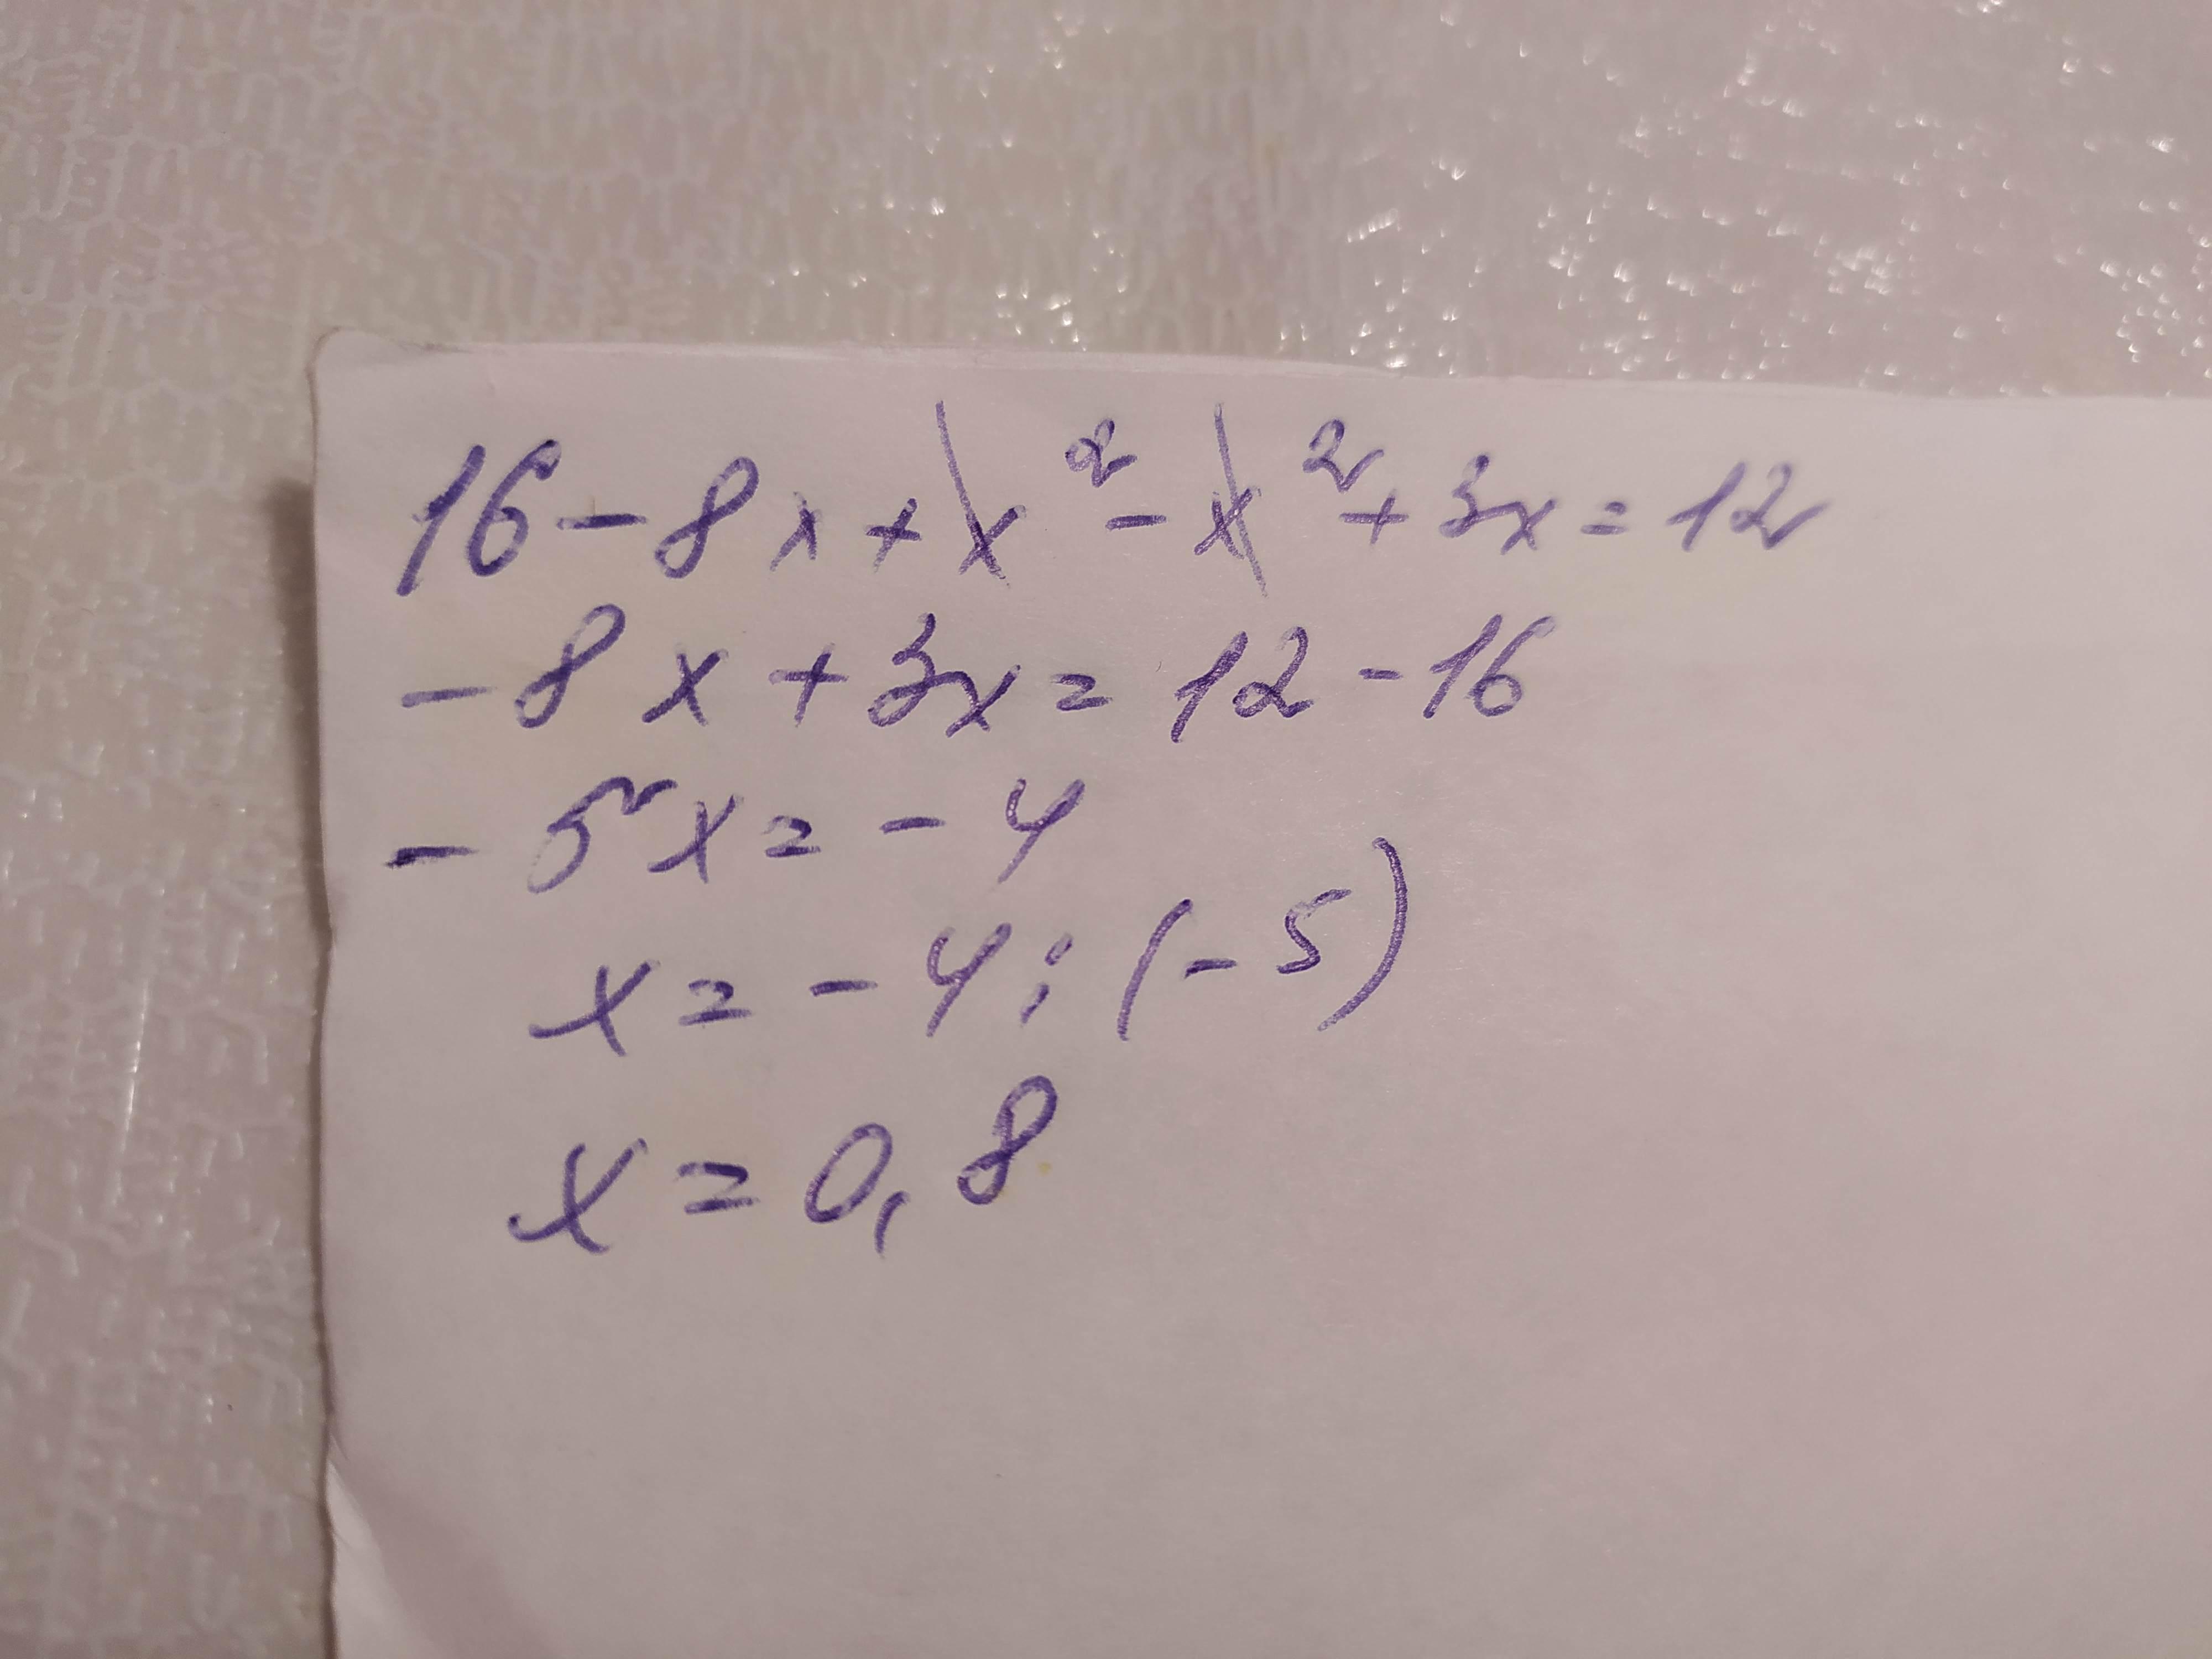 16-8x+x²-x²+3x=12
-8x+3x=12-16
-5x=-4
x=-4:(-5)
x=0,8